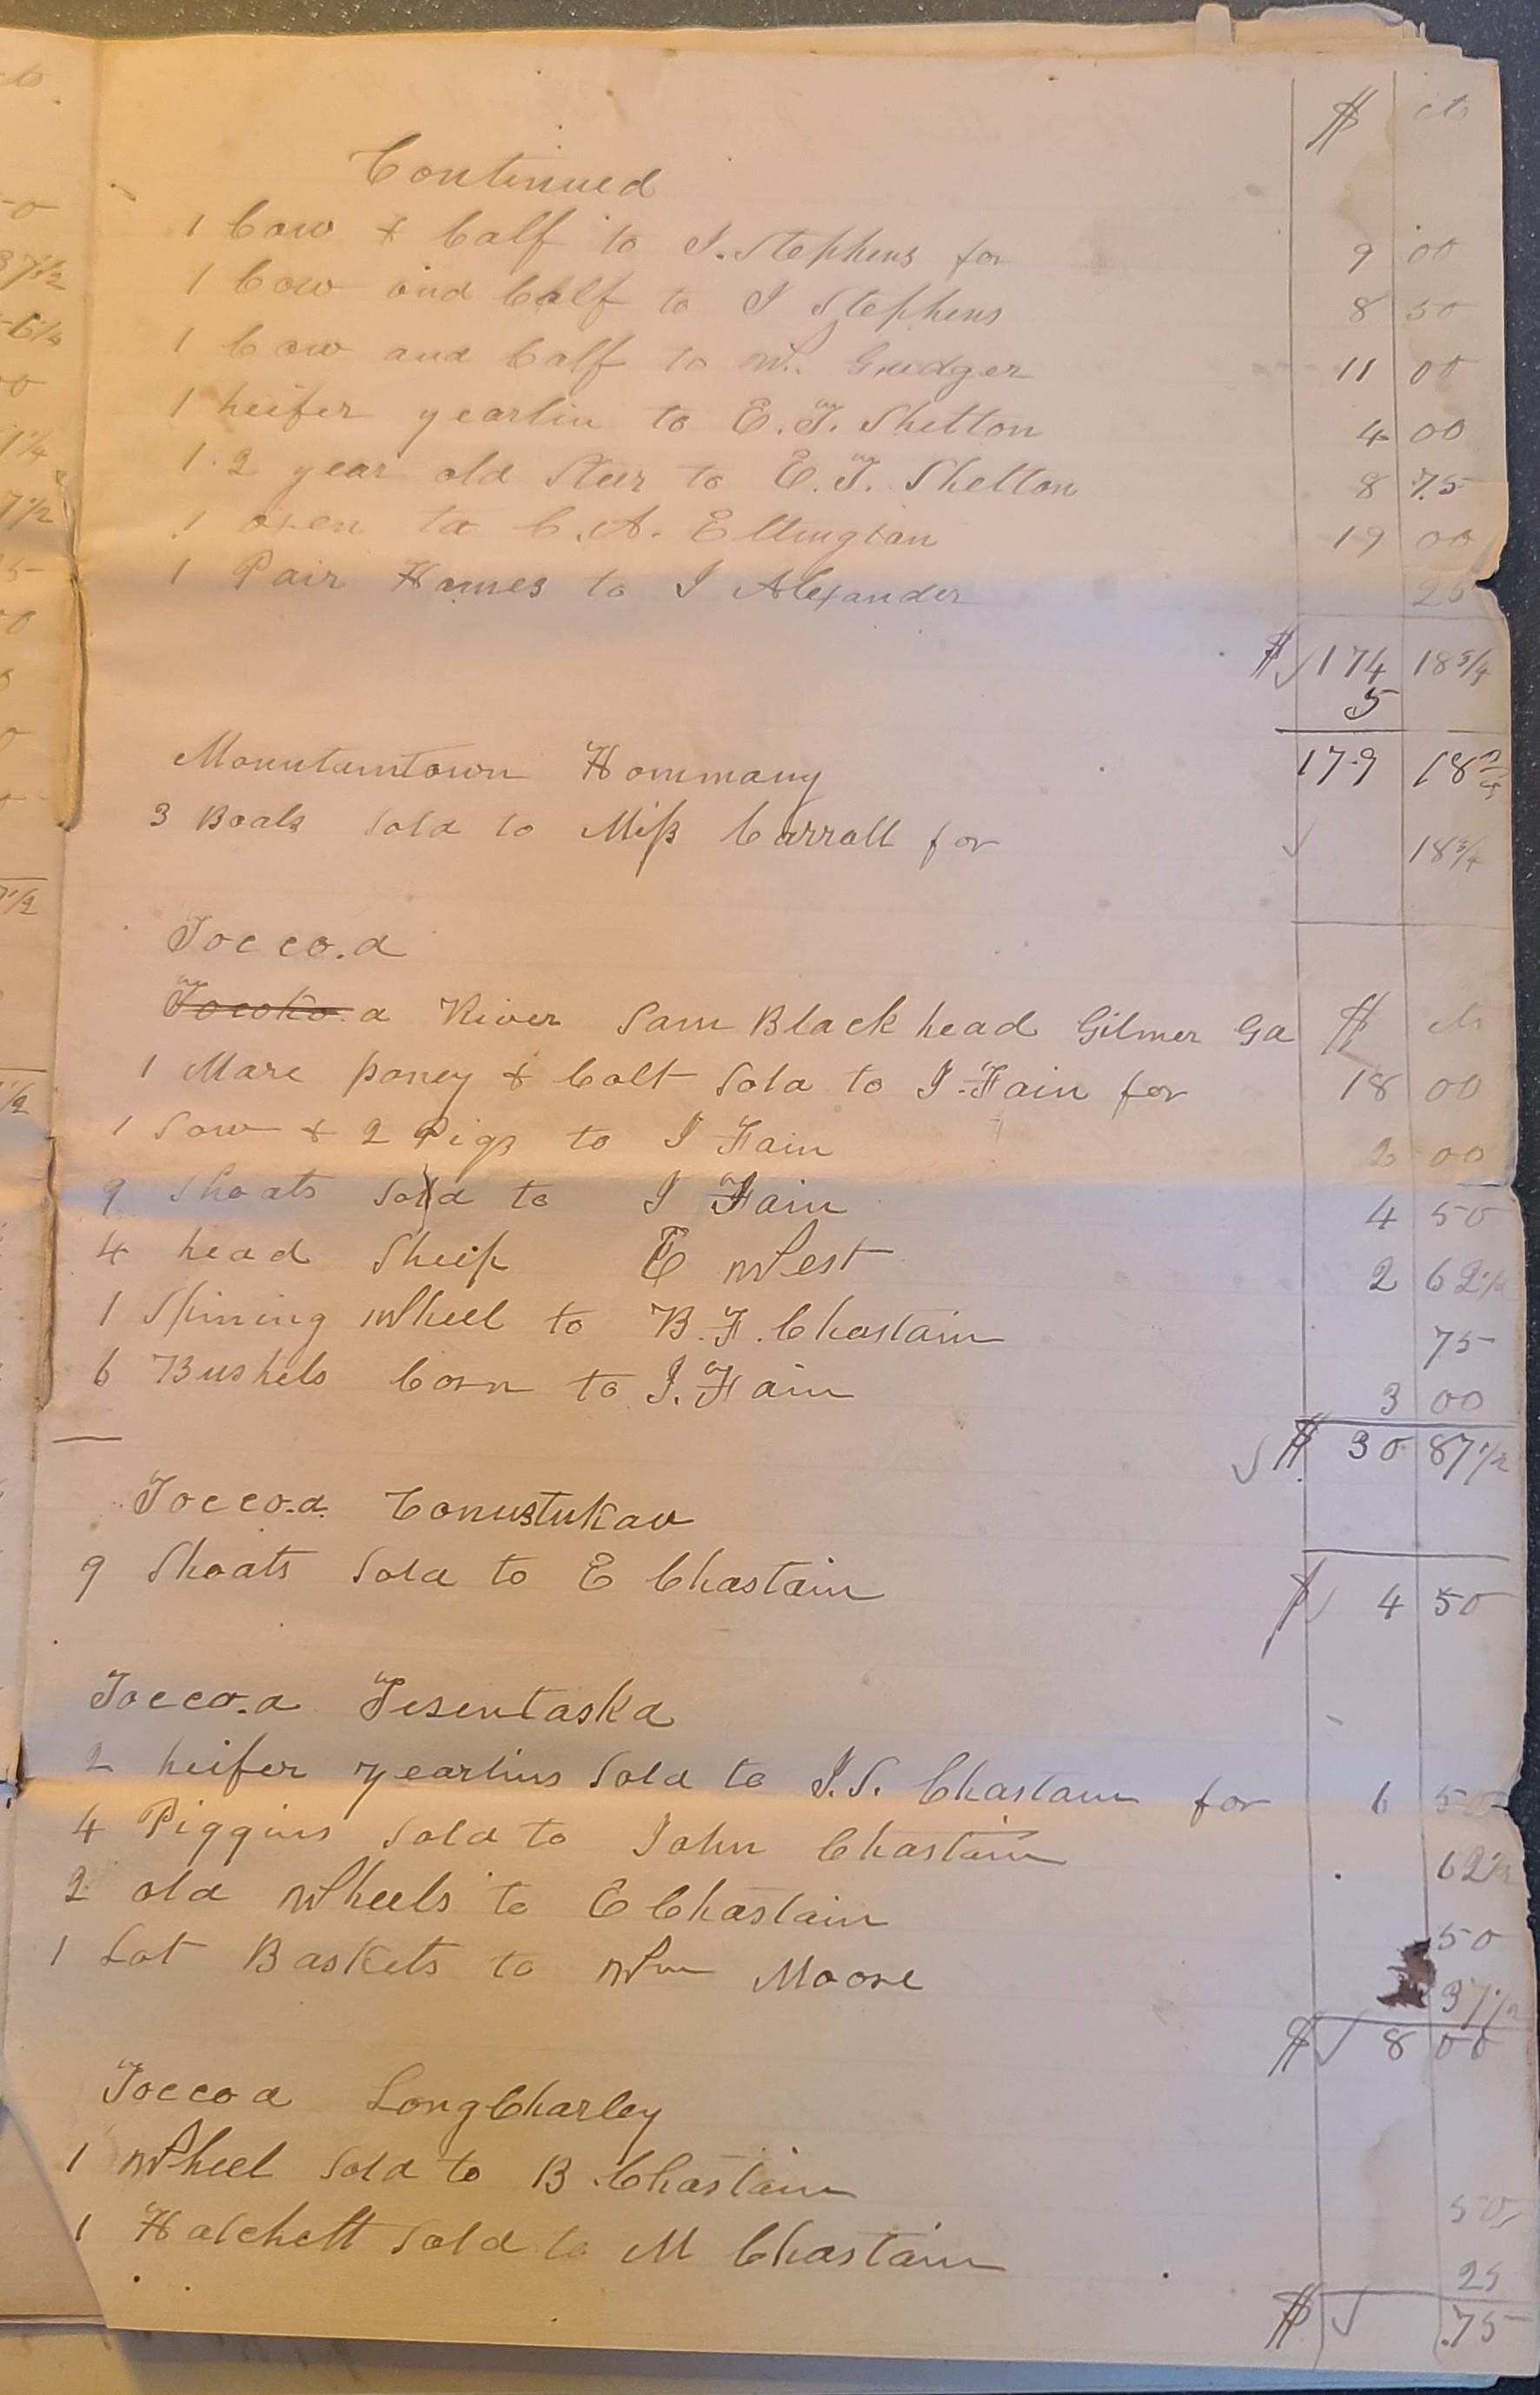 $ cts
Continued
1 Cow & Calf to J. Stephens for 9 00
1 Cow and Calf to J Stephens 8 50
1 Cow and Calf to W. Gudger 11 00
1 heifer yearlin to E. T. Shelton 4 00
1 2 year old Steer to E. T. Shelton 8 75
1 oxen to C. A. Ellington 19 00
1 Pair Hames to J Alexander 25
$ 174 18 3/4
5
179 18 3/4
Mountaintown Hommany
3 Boals Sold to Miss Carroll for 18 3/4
Tocco.a
Tocoko a River Sam Blackhead Gilmer Ga $ cts
1 Mare poney & Colt Sold to J. Fain for 18 00
1 Sow & 2 Pigs to J Fain 2 00
9 Shoats Sold to J Fain 4 50
4 head Sheep E West 2 62 1/2
1 Spining Wheel to B. F. Chastain 75
6 Bushels Corn to J. Fain 3 00
$ 30 87 1/2
Tocco.a Conustukau
9 Shoats Sold to E Chastain $ 4 50
Tocco.a Tesentaska
2 heifer yearlins Sold to J. S. Chastain for 6 50
4 Piggins Sold to John Chastain 62 1/2
2 old Wheels to E Chastain 50
1 Lot Baskets to Wm Moore 37 1/2
$ 8 00
Toccoa Long Charley
1 Wheel Sold to B. Chastain 50
1 Hatchett Sold to M Chastain 25
$ .75